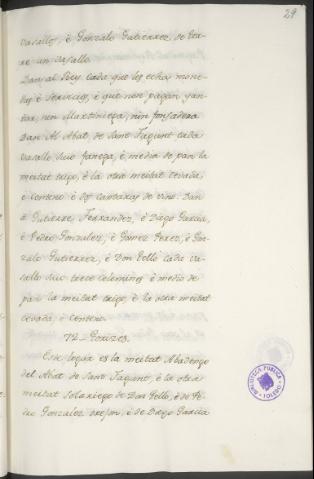 29
vasallo, è Gonzalo Gutierrez, de
re un vasallo.
Dan al Rey cada que les echa mone-
das è servicios, è que non pagan yan-
tar, nin Martiniega, nin fonsadera
Dan Al Abat de Sant Fagunt cada
vasallo suo fanega, è media de pan la
meitat trigo, è la otra meitat cevada,
è centeno è dos cantaras de vino. Dan
à Gutierre Ferrandez, è Diego Garcia,
è Pedro Gonzalez, è Gomez Perez, è Gon-
zalo Gutierrez, è Don Tello cada va-
sallo suo trece celemines è medio de
pan la meitat trigo, è la otra meitat
cevada, è centeno.
72-
Este logar es la meitat Abadengo
del Abat de Sant Fagunt, è la otra
meitat solariego de Don Tello, è de Pe-
dro Gonzalez, è de Diego Garcia
BIBLIOTECA PUBLICA
TOLEDO